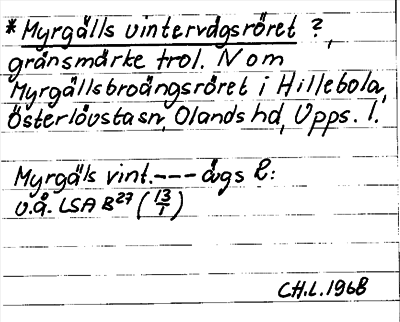 *Myrgälls vintervägsröret ?,
gränsmärke trol. N om
Myrgällsbroängsröret i Hillebola,
Österlövsta sn, Olands hd, Upps. l.
Myrgäls vint.--- ägs R:
u.å. LSA B27 (13/1)
CH.L. 1968